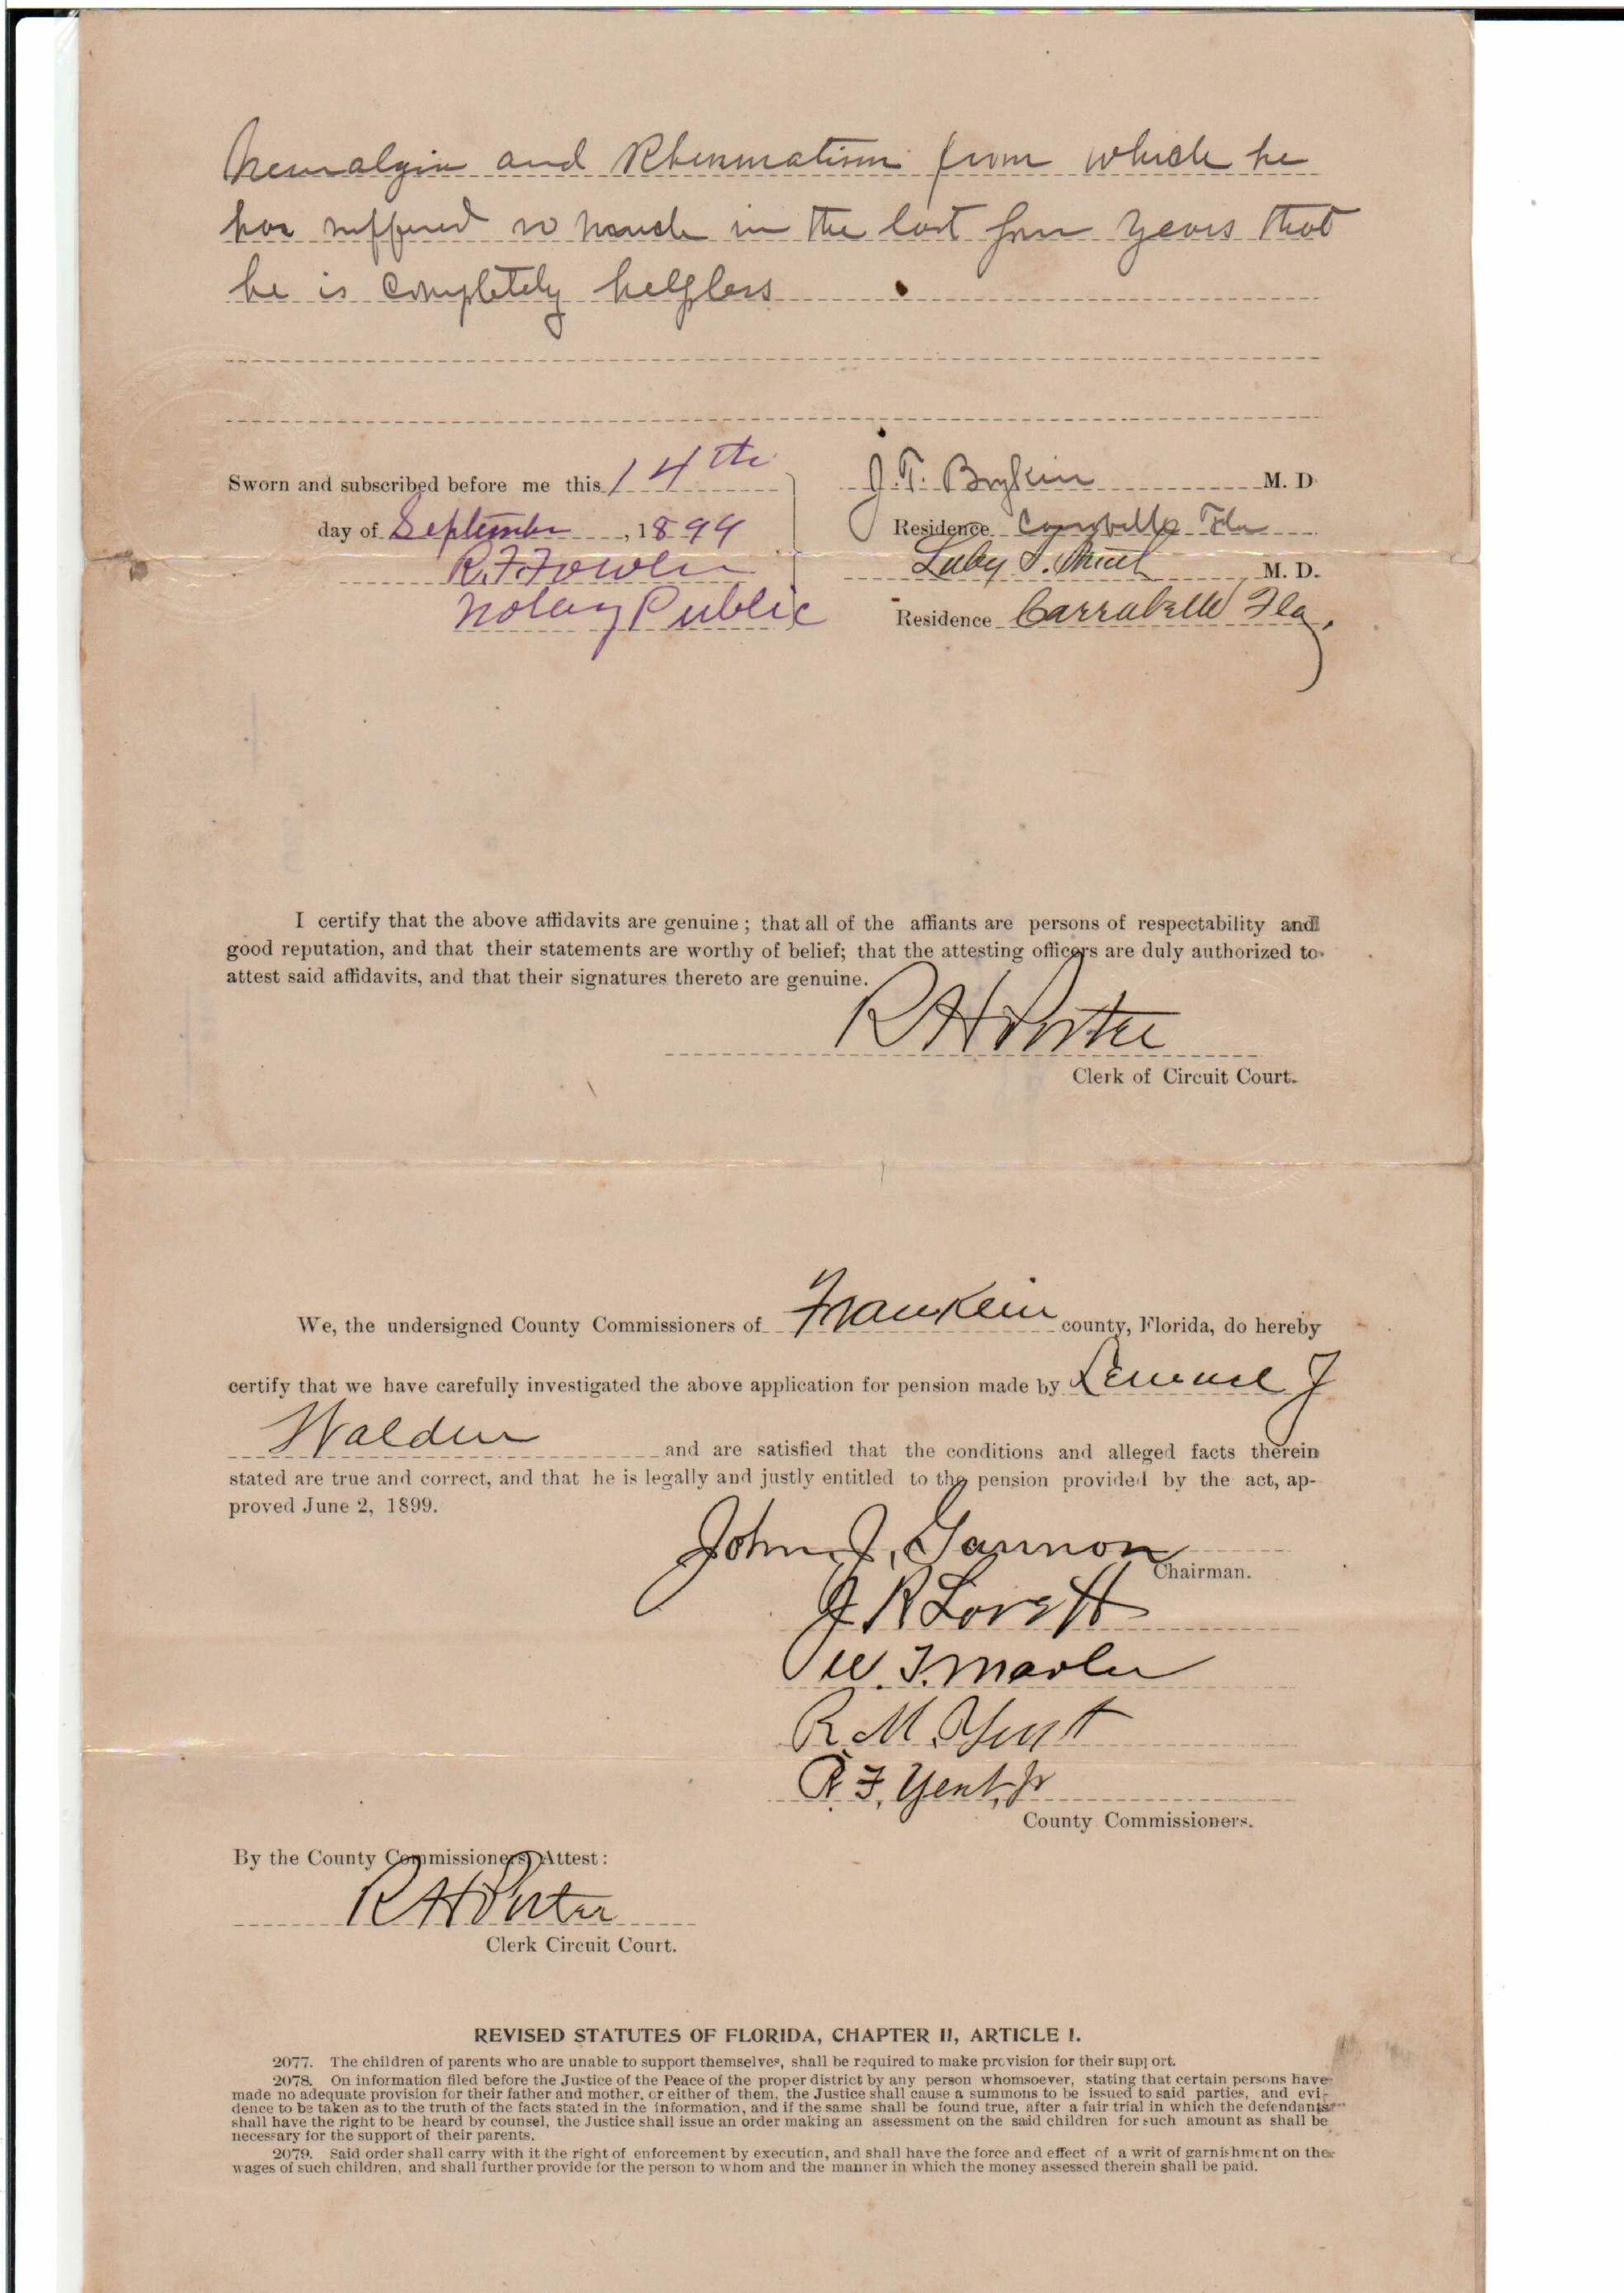 Neuralgia and Rheumatism from which he
has suffered so much in the last four years that
he is completely helpless
Sworn and subscribed before me this 14th
day of September, 1899
R. F. Fowler
Notary Public
J. T. M. D.
Residence Fla
Luby S. M. D.
Residence Carrabelle Fla,
I certify that the above affidavits are genuine; that all of the affiants are persons of respectability and
good reputation, and that their statements are worthy of belief; that the attesting officers are duly authorized to
attest said affidavits, and that their signatures thereto are genuine.
R H Porter
Clerk of Circuit Court.
We, the undersigned County Commissioners of Franklin county, Florida, do hereby
certify that we have carefully investigated the above application for pension made by Lemuel J
Walden and are satisfied that the conditions and alleged facts therein
stated are true and correct, and that he is legally and justly entitled to the pension provided by the act, ap-
proved June 2, 1899.
John J. Gannon
Chairman.
J R Lovett
W. T. Marler
R. M. Yent
R. F. Yent, Jr
County Commissioners.
By the County Commissioners, Attest:
R H Porter
Clerk Circuit Court.
REVISED STATUTES OF FLORIDA, CHAPTER II, ARTICLE I.
2077. The children of parents who are unable to support themselves, shall be required to make provision for their support.
2078. On information filed before the Justice of the Peace of the proper district by any person whomsoever, stating that certain persons have
made no adequate provision for their father and mother, or either of them, the Justice shall cause a summons to be issued to said parties, and evi-
dence to be taken as to the truth of the facts stated in the information, and if the same shall be found true, after a fair trial in which the defendants
shall have the right to be heard by counsel, the Justice shall issue an order making an assessment on the said children for such amount as shall be
necessary for the support of their parents.
2079. Said order shall carry with it the right of enforcement by execution, and shall have the force and effect of a writ of garnishment on the
wages of such children, and shall further provide for the person to whom and the manner in which the money assessed therein shall be paid.